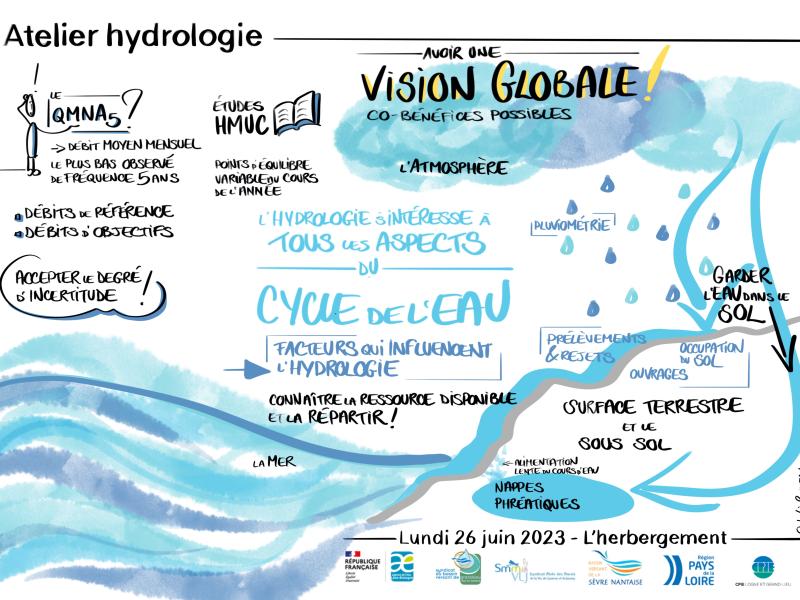 Atelier hydrologie
LE
QMNA5?
-> DÉBIT MOYEN MENSUEL
LE PLUS BAS OBSERVÉ
DE FRÉQUENCE 5 ANS
DÉBITS DE RÉFÉRENCE
DÉBITS D'OBJECTIFS
ACCEPTER LE DEGRÉ
D'INCERTITUDE !
ÉTUDES
HMUC
POINTS D'ÉQUILIBRE
VARIABLE AU COURS
DE L'ANNÉE
AVOIR UNE
VISION GLOBALE !
CO-BÉNÉFICES POSSIBLES
L'ATMOSPHÈRE
L'HYDROLOGIE S'INTÉRESSE À
TOUS LES ASPECTS
DU
CYCLE DE L'EAU
FACTEURS QUI INFLUENCENT
L'HYDROLOGIE
CONNAÎTRE LA RESSOURCE DISPONIBLE
ET LA RÉPARTIR !
LA MER
PLUVIOMÉTRIE
GARDER
L'EAU DANS LE
SOL
PRÉLÈVEMENTS
& REJETS
OCCUPATION
DU SOL
OUVRAGES
SURFACE TERRESTRE
ET LE
SOUS SOL
<- ALIMENTATION
LENTE DU COURS D'EAU
NAPPES
PHRÉATIQUES
Lundi 26 juin 2023 - L'herbergement
RÉPUBLIQUE
FRANÇAISE
Liberté
Égalité
Fraternité
SÈVRE NANTAISE
Région
PAYS
de la
LOIRE
CPIE LOGNE ET GRAND LIEU